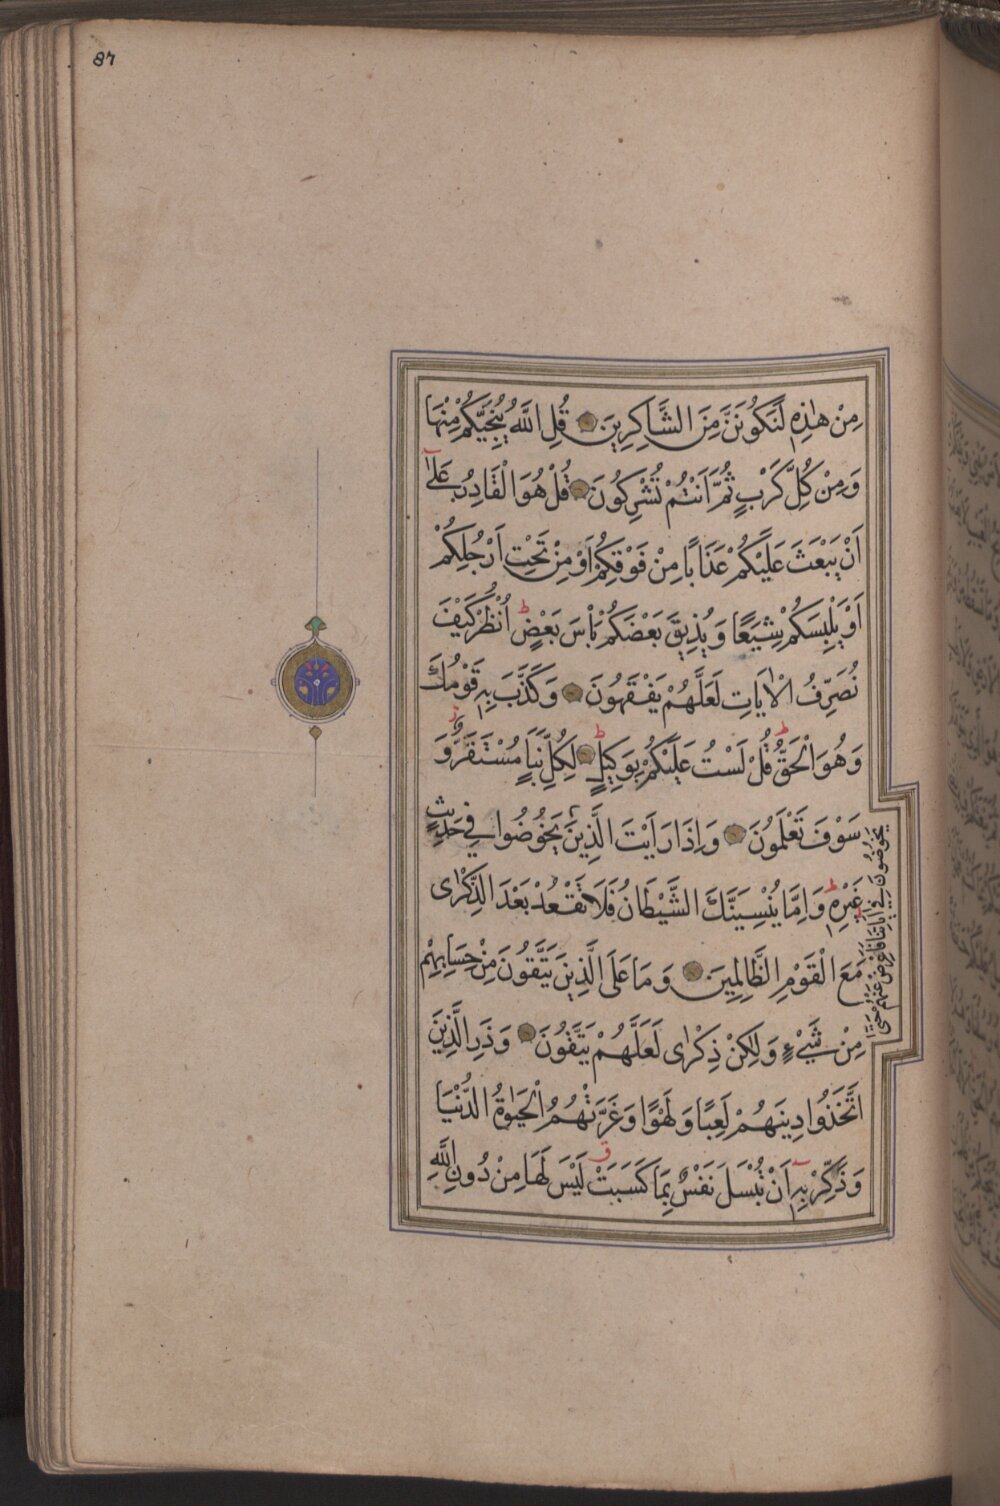 87
مِنْ هٰذِهِ لَنَكُونَنَّ مِنَ الشَّاكِرِينَ قُلِ اللّٰهُ يُنَجِّيكُمْ مِنْهَا
وَمِنْ كُلِّ كَرْبٍ ثُمَّ اَنْتُمْ تُشْرِكُونَ قُلْ هُوَ الْقَادِرُ عَلٰٓى
اَنْ يَبْعَثَ عَلَيْكُمْ عَذَابًا مِنْ فَوْقِكُمْ اَوْ مِنْ تَحْتِ اَرْجُلِكُمْ
اَوْ يَلْبِسَكُمْ شِيَعًا وَيُذِيقَ بَعْضَكُمْ بَاْسَ بَعْضٍ ط اُنْظُرْ كَيْفَ
نُصَرِّفُ الْاٰيَاتِ لَعَلَّهُمْ يَفْقَهُونَ وَكَذَّبَ بِهِ قَوْمُكَ
وَهُوَ الْحَقُّ ط قُلْ لَسْتُ عَلَيْكُمْ بِوَكِيلٍ ط لِكُلِّ نَبَاٍ مُسْتَقَرٌّ ز وَ
سَوْفَ تَعْلَمُونَ وَاِذَا رَاَيْتَ الَّذِينَ يَخُوضُوا فِي حَدِيثٍ
يَخُوضُونَ فِي اٰيَاتِنَا فَاَعْرِضْ عَنْهُمْ حَتّٰى
غَيْرِهِ ط وَاِمَّا يُنْسِيَنَّكَ الشَّيْطَانُ فَلَا تَقْعُدْ بَعْدَ الذِّكْرٰى
مَعَ الْقَوْمِ الظَّالِمِينَ وَمَا عَلَى الَّذِينَ يَتَّقُونَ مِنْ حِسَابِهِمْ
مِنْ شَيْءٍ وَلٰكِنْ ذِكْرٰى لَعَلَّهُمْ يَتَّقُونَ وَذَرِ الَّذِينَ
اتَّخَذُوا دِينَهُمْ لَعِبًا وَلَهْوًا وَغَرَّتْهُمُ الْحَيٰوةُ الدُّنْيَا
وَذَكِّرْ بِهِ اَنْ تُبْسَلَ نَفْسٌ بِمَا كَسَبَتْ ق لَيْسَ لَهَا مِنْ دُونِ اللّٰهِ